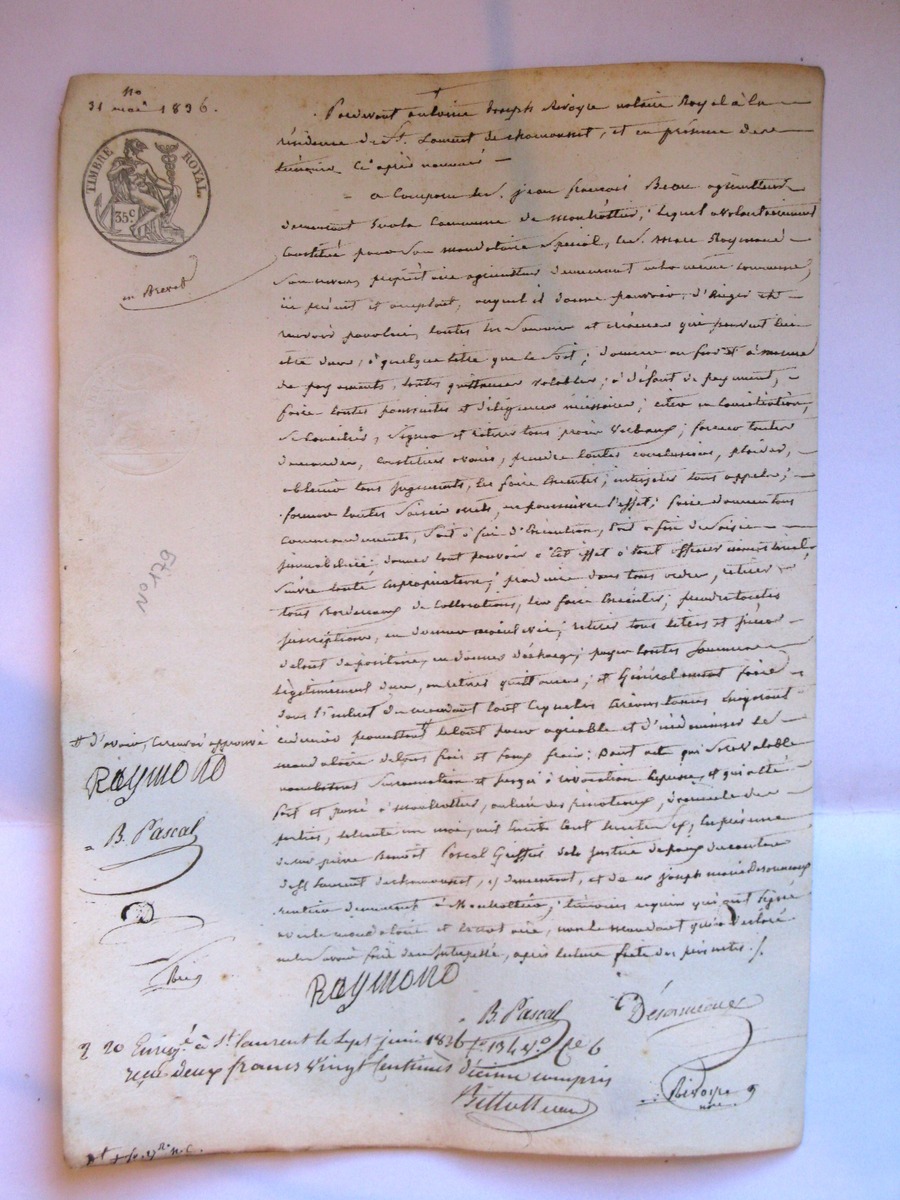 No
31 mai 1836.
TIMBRE ROYAL
35 c.
en Brevet
Pardevant antoine Joseph Rivoyre notaire Royal à la
résidence de St. Laurent de chamousset, et en présence des
témoins ci après nommés
a Comparu le sr. jean françois Beau agriculteur
demeurant sur la Commune de Montrottier, lequel a volontairement
Constitué pour son mandataire spécial, le sr. Marc Raymond
son neveu, propriétaire agriculteur demeurant même commune,
ici présent et acceptant, auquel il donne pouvoir, d'Exiger et
recevoir pour lui, toutes les sommes et créances qui peuvent lui
être dues, à quelque titre que ce soit; donner au fur et à mesure
de payements, toutes quittances valables; à défaut de payement,
faire toutes poursuites et diligences nécessaires; citer en Conciliation,
se Concilier, signer et retirer tous procès verbaux; former toutes
demandes, constituer avoués, prendre toutes conclusions, plaider,
obtenir tous jugements, les faire Exécuter; interjeter tous appels;
former toutes saisies arrêts, en poursuivre l'effet; faire donner tous
commandements, soit à fin d'Exécution, soit à fin de saisie
immobilière; donner tout pouvoir à cet effet à tout officier ministériel,
suivre toute Expropriation; produire dans tous ordres, retirer
tous Bordereaux de Collocations, les faire Exécuter; prendre toutes
Inscriptions, en donner mainlevée; retirer tous titres et pièces
de tout dépositaire, en donner décharge; payer toutes sommes
légitimement dues, en retirer quittances; et Généralement faire
dans l'intérêt du mandant tout ce que les circonstances Exigeront
ce dernier promettant le tout pour agréable et d'indemniser le
mandataire de tous frais et faux frais; Dont acte qui sera valable
nonobstant surannation et jusqu'à révocation Expresse, et qui a été
fait et passé à Montrottier, au lieu des pinoteaux, domicile des
parties, le trente un mai, mil huit Cent trente six, En présence
de mr pierre Benoît Pascal Greffier de la Justice de paix du canton
de St laurent de chamousset, y demeurant, et de mr Joseph marie Desormeaux
rentier demeurant à Montrottier; témoins requis qui ont signé
avec le mandataire et le notaire, non le mandant qui a déclaré
ne le savoir faire de ce Interpellé, après lecture faite des présentes. /.
# d'avoir, le renvoi approuvé
RAYMOND
B. Pascal
D
Riv
6tron
RAYMOND
B Pascal
Désormeaux
Rivoyre
nore
Enreg.é à St. laurent le sept juin 1836 fo. 134 vo. Ce 6
reçu deux francs vingt Centimes décime compris